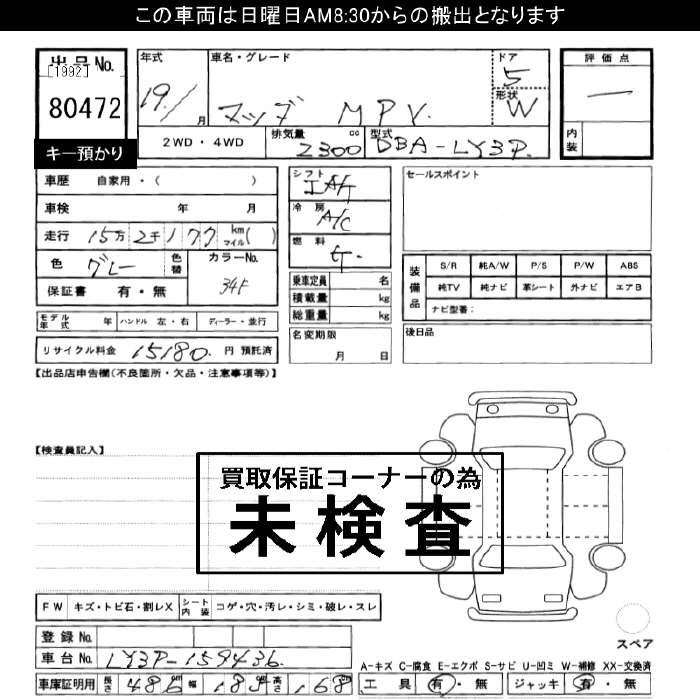 この車両は日曜日AM8:30からの搬出となります
出品No.
[1992]
80472
キー預かり
年式 車名・グレード ドア
19/1月 マツダ MPV 5
形状
W
評価点
一
内装
2WD・4WD 排気量 2300 cc 型式 DBA-LY3P
車歴 自家用・( )
車検 年 月
走行 15万2千177 km マイル( )
色 グレー 色替 カラーNo. 34F
保証書 有・無
シフト IAT
冷房 A/C
燃料 ガ
乗車定員 名
積載量 kg
総重量 kg
セールスポイント
装備品
S/R 純A/W P/S P/W ABS
純TV 純ナビ 革シート 外ナビ エアB
ナビ型番:
モデル年式 年 ハンドル 左・右 ディーラー・並行
名変期限
月 日
後日品
リサイクル料金 15180 円 預託済
【出品店申告欄(不良箇所・欠品・注意事項等)】
【検査員記入】
買取保証コーナーの為
未検査
FW キズ・トビ石・割レX シート内装 コゲ・穴・汚レ・シミ・破レ・スレ
スペア
登録No.
車台No. LY3P-159436
A-キズ C-腐食 E-エクボ S-サビ U-凹ミ W-補修 XX-交換済
車庫証明用 長さ 486 幅 185 高さ 168
工具 有・無 ジャッキ 有・無